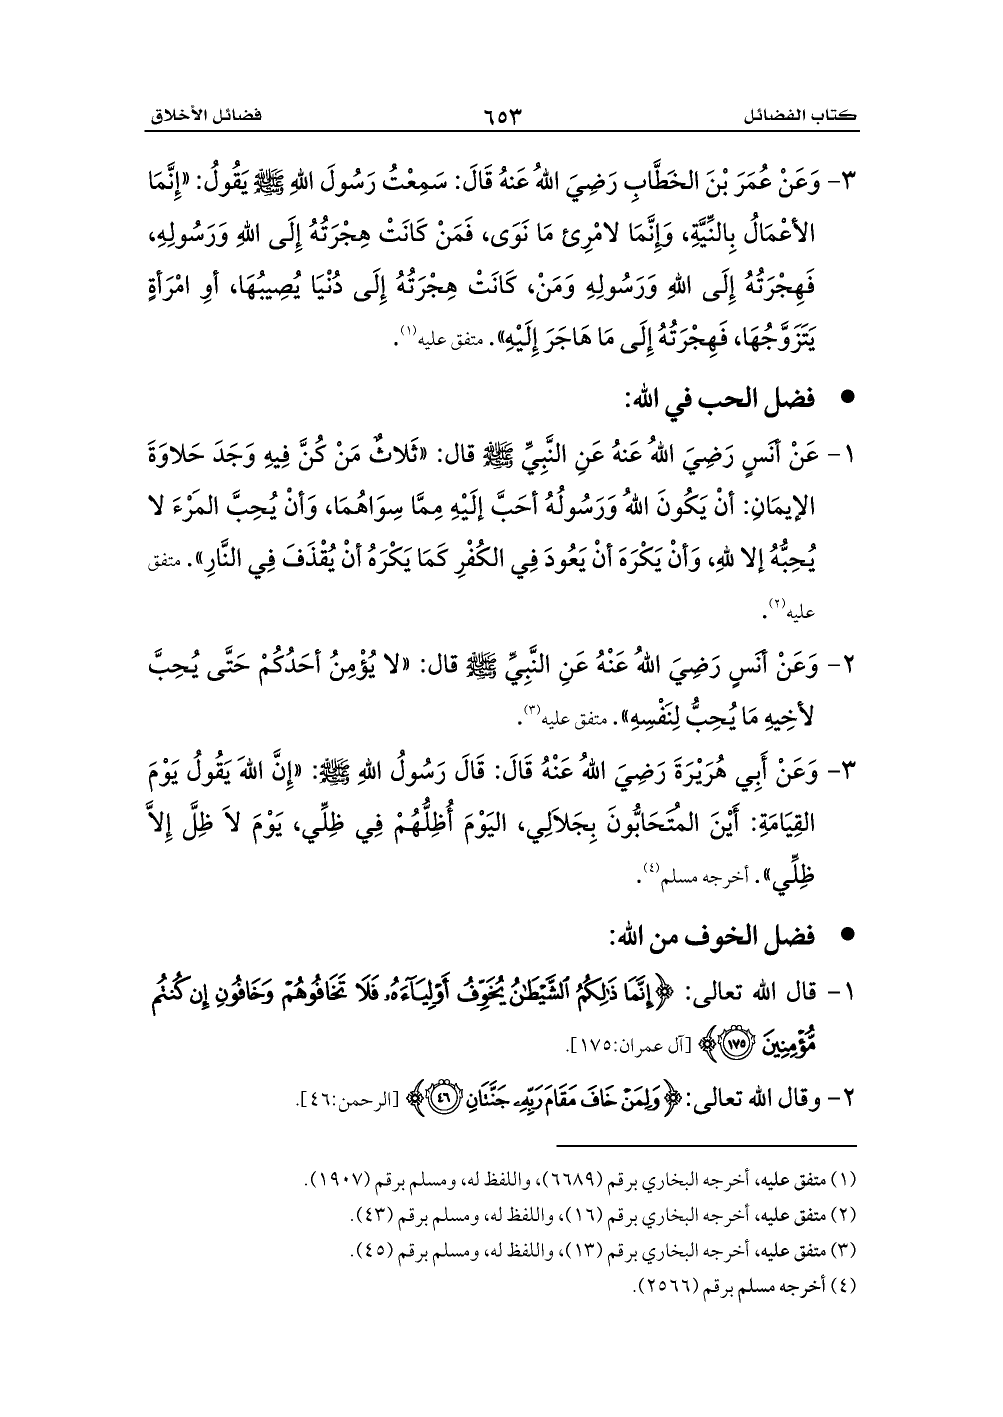 كتاب الفضائل ٦٥٣ فضائل الأخلاق
٣- وَعَنْ عُمَرَ بْنَ الخَطَّابِ رَضِيَ اللهُ عَنهُ قَالَ: سَمِعْتُ رَسُولَ اللهِ ﷺ يَقُولُ: «إنَّمَا
الأعْمَالُ بِالنِّيَّةِ، وَإنَّمَا لامْرِئ مَا نَوَى، فَمَنْ كَانَتْ هِجْرَتُهُ إلَى اللهِ وَرَسُولِهِ،
فَهِجْرَتُهُ إلَى اللهِ وَرَسُولِهِ وَمَنْ، كَانَتْ هِجْرَتُهُ إلَى دُنْيَا يُصِيبُهَا، أوِ امْرَأةٍ
يَتَزَوَّجُهَا، فَهِجْرَتُهُ إلَى مَا هَاجَرَ إلَيْهِ». متفق عليه(١).
● فضل الحب في الله:
١- عَنْ أنَسٍ رَضِيَ اللهُ عَنهُ عَنِ النَّبِيِّ ﷺ قال: «ثَلاثٌ مَنْ كُنَّ فِيهِ وَجَدَ حَلاوَةَ
الإيمَانِ: أنْ يَكُونَ اللهُ وَرَسُولُهُ أحَبَّ إلَيْهِ مِمَّا سِوَاهُمَا، وَأنْ يُحِبَّ المَرْءَ لا
يُحِبُّهُ إلا للهِ، وَأنْ يَكْرَهَ أنْ يَعُودَ فِي الكُفْرِ كَمَا يَكْرَهُ أنْ يُقْذَفَ فِي النَّارِ». متفق
عليه(٢).
٢- وَعَنْ أنَسٍ رَضِيَ اللهُ عَنْهُ عَنِ النَّبِيِّ ﷺ قال: «لا يُؤْمِنُ أحَدُكُمْ حَتَّى يُحِبَّ
لأخِيهِ مَا يُحِبُّ لِنَفْسِهِ». متفق عليه(٣).
٣- وَعَنْ أَبِي هُرَيْرَةَ رَضِيَ اللهُ عَنْهُ قَالَ: قَالَ رَسُولُ اللهِ ﷺ: «إنَّ اللهَ يَقُولُ يَوْمَ
القِيَامَةِ: أَيْنَ المُتَحَابُّونَ بِجَلاَلِي، اليَوْمَ أُظِلُّهُمْ فِي ظِلِّي، يَوْمَ لاَ ظِلَّ إِلاَّ
ظِلِّي». أخرجه مسلم(٤).
● فضل الخوف من الله:
١- قال الله تعالى: ﴿إِنَّمَا ذَٰلِكُمُ ٱلشَّيْطَٰنُ يُخَوِّفُ أَوْلِيَآءَهُۥ فَلَا تَخَافُوهُمْ وَخَافُونِ إِن كُنتُم
مُّؤْمِنِينَ ١٧٥﴾ [آل عمران:١٧٥].
٢- وقال الله تعالى: ﴿وَلِمَنْ خَافَ مَقَامَ رَبِّهِۦ جَنَّتَانِ ٤٦﴾ [الرحمن:٤٦].
(١) متفق عليه، أخرجه البخاري برقم (٦٦٨٩)، واللفظ له، ومسلم برقم (١٩٠٧).
(٢) متفق عليه، أخرجه البخاري برقم (١٦)، واللفظ له، ومسلم برقم (٤٣).
(٣) متفق عليه، أخرجه البخاري برقم (١٣)، واللفظ له، ومسلم برقم (٤٥).
(٤) أخرجه مسلم برقم (٢٥٦٦).